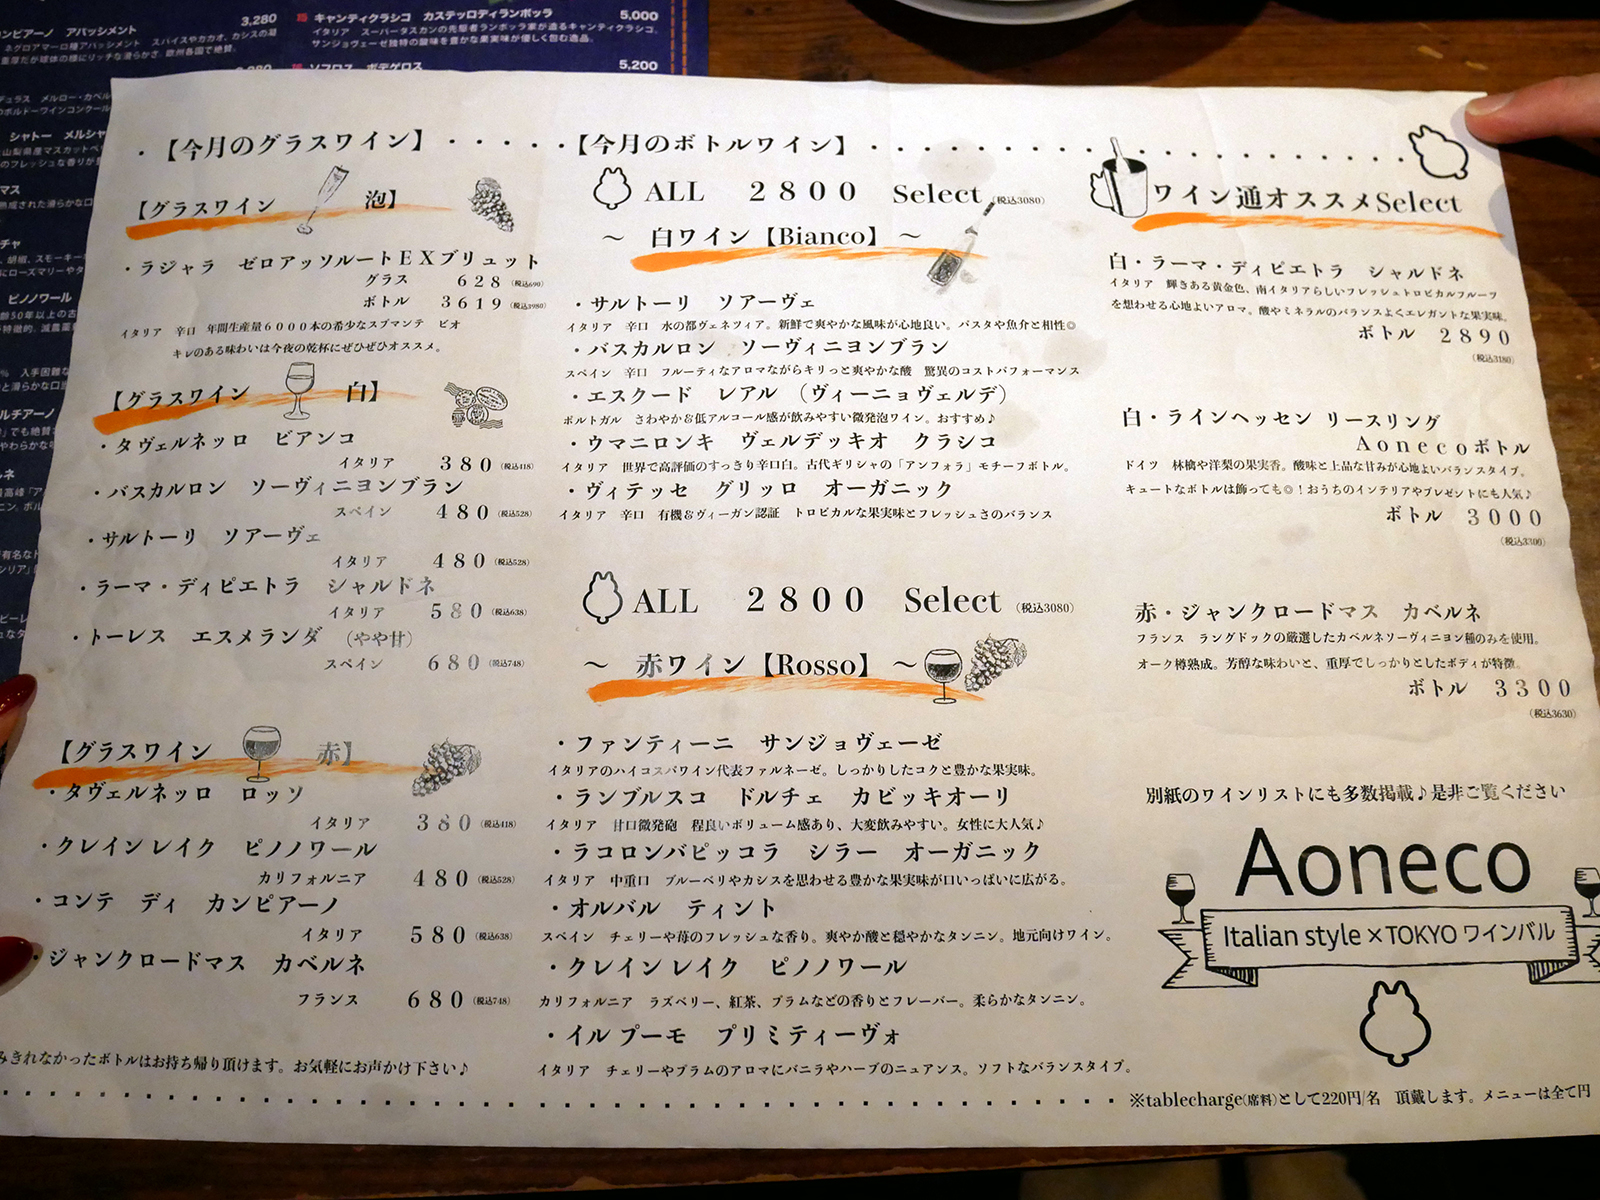 ンピアーノ　アパッシメント
3,280
ネグロアマーロ種アパッシメント　スパイスやカカオ、カシスの凝
重厚だが球体の様にリッチな滑らかさ。欧州各国で絶賛。
15 キャンティクラシコ　カステッロディランポッラ
5,000
イタリア　スーパータスカンの先駆者ランポッラ家が造るキャンティクラシコ。
サンジョヴェーゼ独特の酸味を豊かな果実味が優しく包む逸品。
5,200
デュラス　メルロー・カベル
のボルドーワインコンクール
シャトー　メルシャ
山梨県産マスカットベ
のフレッシュな香りが
マス
ピノノワール
・【今月のグラスワイン】
【グラスワイン　泡】
・ラジャラ　ゼロアッソルートEXブリュット
グラス　628（税込690）
ボトル　3619（税込3980）
イタリア　辛口　年間生産量6000本の希少なスプマンテ　ビオ
キレのある味わいは今夜の乾杯にぜひぜひオススメ。
【グラスワイン　白】
・タヴェルネッロ　ビアンコ
イタリア　380（税込418）
・バスカルロン　ソーヴィニヨンブラン
スペイン　480（税込528）
・サルトーリ　ソアーヴェ
イタリア　480（税込528）
・ラーマ・ディピエトラ　シャルドネ
イタリア　580（税込638）
・トーレス　エスメランダ　（やや甘）
スペイン　680（税込748）
【グラスワイン　赤】
・タヴェルネッロ　ロッソ
イタリア　380（税込418）
・クレイン レイク　ピノノワール
カリフォルニア　480（税込528）
・コンテ　ディ　カンピアーノ
イタリア　580（税込638）
・ジャンクロードマス　カベルネ
フランス　680（税込748）
みきれなかったボトルはお持ち帰り頂けます。お気軽にお声かけ下さい♪
【今月のボトルワイン】
ALL　2800　Select（税込3080）
～　白ワイン【Bianco】　～
・サルトーリ　ソアーヴェ
イタリア　辛口　水の都ヴェネツィア。新鮮で爽やかな風味が心地良い。パスタや魚介と相性◎
・バスカルロン　ソーヴィニヨンブラン
スペイン　辛口　フルーティなアロマながらキリっと爽やかな酸　驚異のコストパフォーマンス
・エスクード　レアル　（ヴィーニョヴェルデ）
ポルトガル　さわやか＆低アルコール感が飲みやすい微発泡ワイン。おすすめ♪
・ウマニロンキ　ヴェルデッキオ　クラシコ
イタリア　世界で高評価のすっきり辛口白。古代ギリシャの「アンフォラ」モチーフボトル。
・ヴィテッセ　グリッロ　オーガニック
イタリア　辛口　有機＆ヴィーガン認証　トロピカルな果実味とフレッシュさのバランス
ALL　2800　Select（税込3080）
～　赤ワイン【Rosso】　～
・ファンティーニ　サンジョヴェーゼ
イタリアのハイコスパワイン代表ファルネーゼ。しっかりしたコクと豊かな果実味。
・ランブルスコ　ドルチェ　カビッキオーリ
イタリア　甘口微発砲　程良いボリューム感あり、大変飲みやすい。女性に大人気♪
・ラコロンバピッコラ　シラー　オーガニック
イタリア　中重口　ブルーベリやカシスを思わせる豊かな果実味が口いっぱいに広がる。
・オルバル　ティント
スペイン　チェリーや苺のフレッシュな香り。爽やか酸と穏やかなタンニン。地元向けワイン。
・クレイン レイク　ピノノワール
カリフォルニア　ラズベリー、紅茶、プラムなどの香りとフレーバー。柔らかなタンニン。
・イル プーモ　プリミティーヴォ
イタリア　チェリーやプラムのアロマにバニラやハーブのニュアンス。ソフトなバランスタイプ。
ワイン通オススメSelect
白・ラーマ・ディピエトラ　シャルドネ
イタリア　輝きある黄金色、南イタリアらしいフレッシュトロピカルフルーツ
を想わせる心地よいアロマ。酸やミネラルのバランスよくエレガントな果実味。
ボトル　2890
（税込3180）
白・ラインヘッセン　リースリング
Aonecoボトル
ドイツ　林檎や洋梨の果実香。酸味と上品な甘みが心地よいバランスタイプ。
キュートなボトルは飾っても◎！おうちのインテリアやプレゼントにも人気♪
ボトル　3000
（税込3300）
赤・ジャンクロードマス　カベルネ
フランス　ラングドックの厳選したカベルネソーヴィニヨン種のみを使用。
オーク樽熟成。芳醇な味わいと、重厚でしっかりとしたボディが特徴。
ボトル　3300
（税込3630）
別紙のワインリストにも多数掲載♪是非ご覧ください
Aoneco
Italian style×TOKYO ワインバル
※tablecharge(席料)として220円/名　頂戴します。メニューは全て円